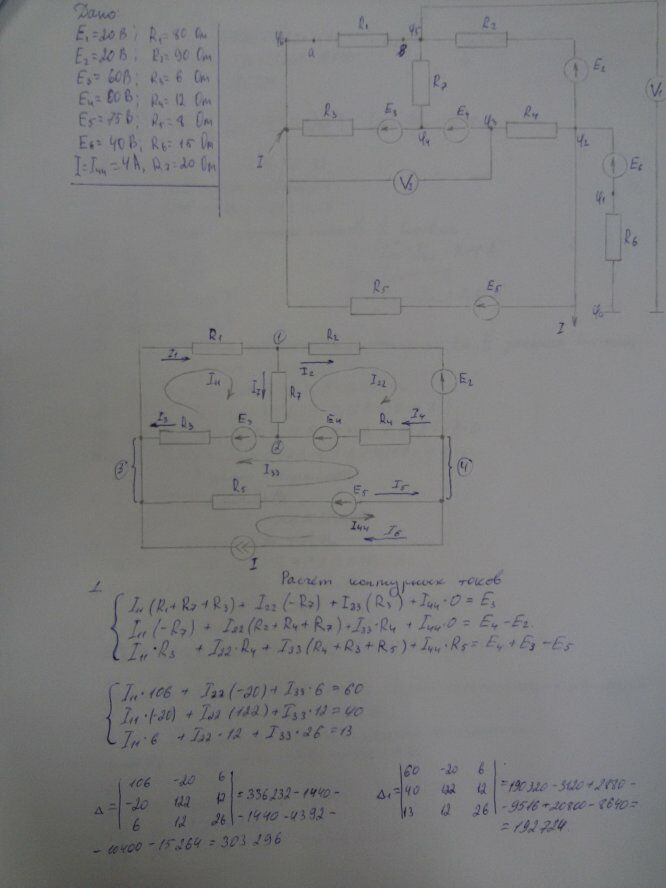 Дано:
E₁=20 В; R₁=80 Ом
E₂=20 В; R₂=90 Ом
E₃=60 В; R₃=6 Ом
E₄=80 В; R₄=12 Ом
E₅=75 В; R₅=8 Ом
E₆=40 В; R₆=15 Ом
I=I₄₄=4 А, R₇=20 Ом
R₁ φ₅ R₂
a
R₇ E₂ V₁
R₃ E₃ E₄ φ₃ R₄
φ₄ φ₂
I E₆
V₂ φ₁
R₆
R₅ E₅
φ₀
I
R₁ ① R₂
I₁ I₂
I₁₁ I₇ R₇ I₂₂ E₂
I₃ R₃ E₃ E₄ R₄ I₄
②
③ I₃₃ ④
R₅ E₅ I₅
I₄₄ I₆
I
1. Расчёт контурных токов
I₁₁(R₁+R₇+R₃)+ I₂₂(-R₇)+I₃₃(R₃)+I₄₄·0=E₃
I₁₁(-R₇)+ I₂₂(R₂+R₄+R₇)+I₃₃·R₄+I₄₄·0=E₄-E₂
I₁₁·R₃ +I₂₂·R₄+ I₃₃(R₄+R₃+R₅)+I₄₄·R₅=E₄+E₃-E₅
I₁₁·106 + I₂₂(-20)+I₃₃·6=60
I₁₁·(-20)+ I₂₂(122)+I₃₃·12=40
I₁₁·6 +I₂₂·12 +I₃₃·26=13
Δ= 106 -20 6
-20 122 12 =336232-1440-
6 12 26 -1440-4392-
-10400-15264=303296
Δ₁= 60 -20 6
40 122 12 =190320-3120+2880-
13 12 26 -9516+20800-8640=
=192724